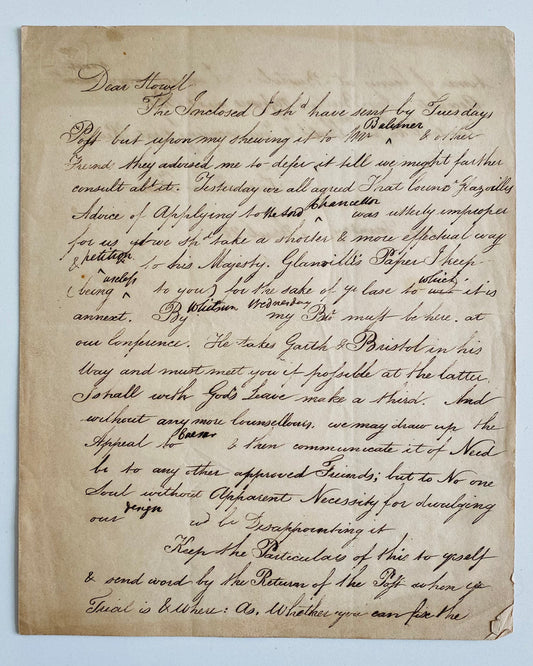 Dear Howell
The Inclosed I shd have sent by Tuesdays
Post but upon my shewing it to Mr Balsmer & other
Freind they advised me to defer it till we might farther
consult abt it. Yesterday we all agreed That Counc Grazailles
Advice of Applying to the Lord Chancellor was utterly improper
for us yt we shd take a shorter & more effectual way
& petition to his Majesty. Glanvill's Paper I keep
(being useless to you) for the sake of ye case to which it is
annext. By Whitsun Wednesday my Br must be here at
our Conference. He takes Garth & Bristol in his
Way and must meet you if possible at the latter
I shall with God's Leave make a third. And
without any more Counsellours, we may draw up the
Appeal to & then communicate it if Need
be to any other approved Friends; but to No one
Soul without Apparent Necessity for divulging
our design wd be Disappointing it
Keep the Particulars of this to yrself
& send word by the Return of the Post when ye
Trial is & Where: As, Whether you can fix the